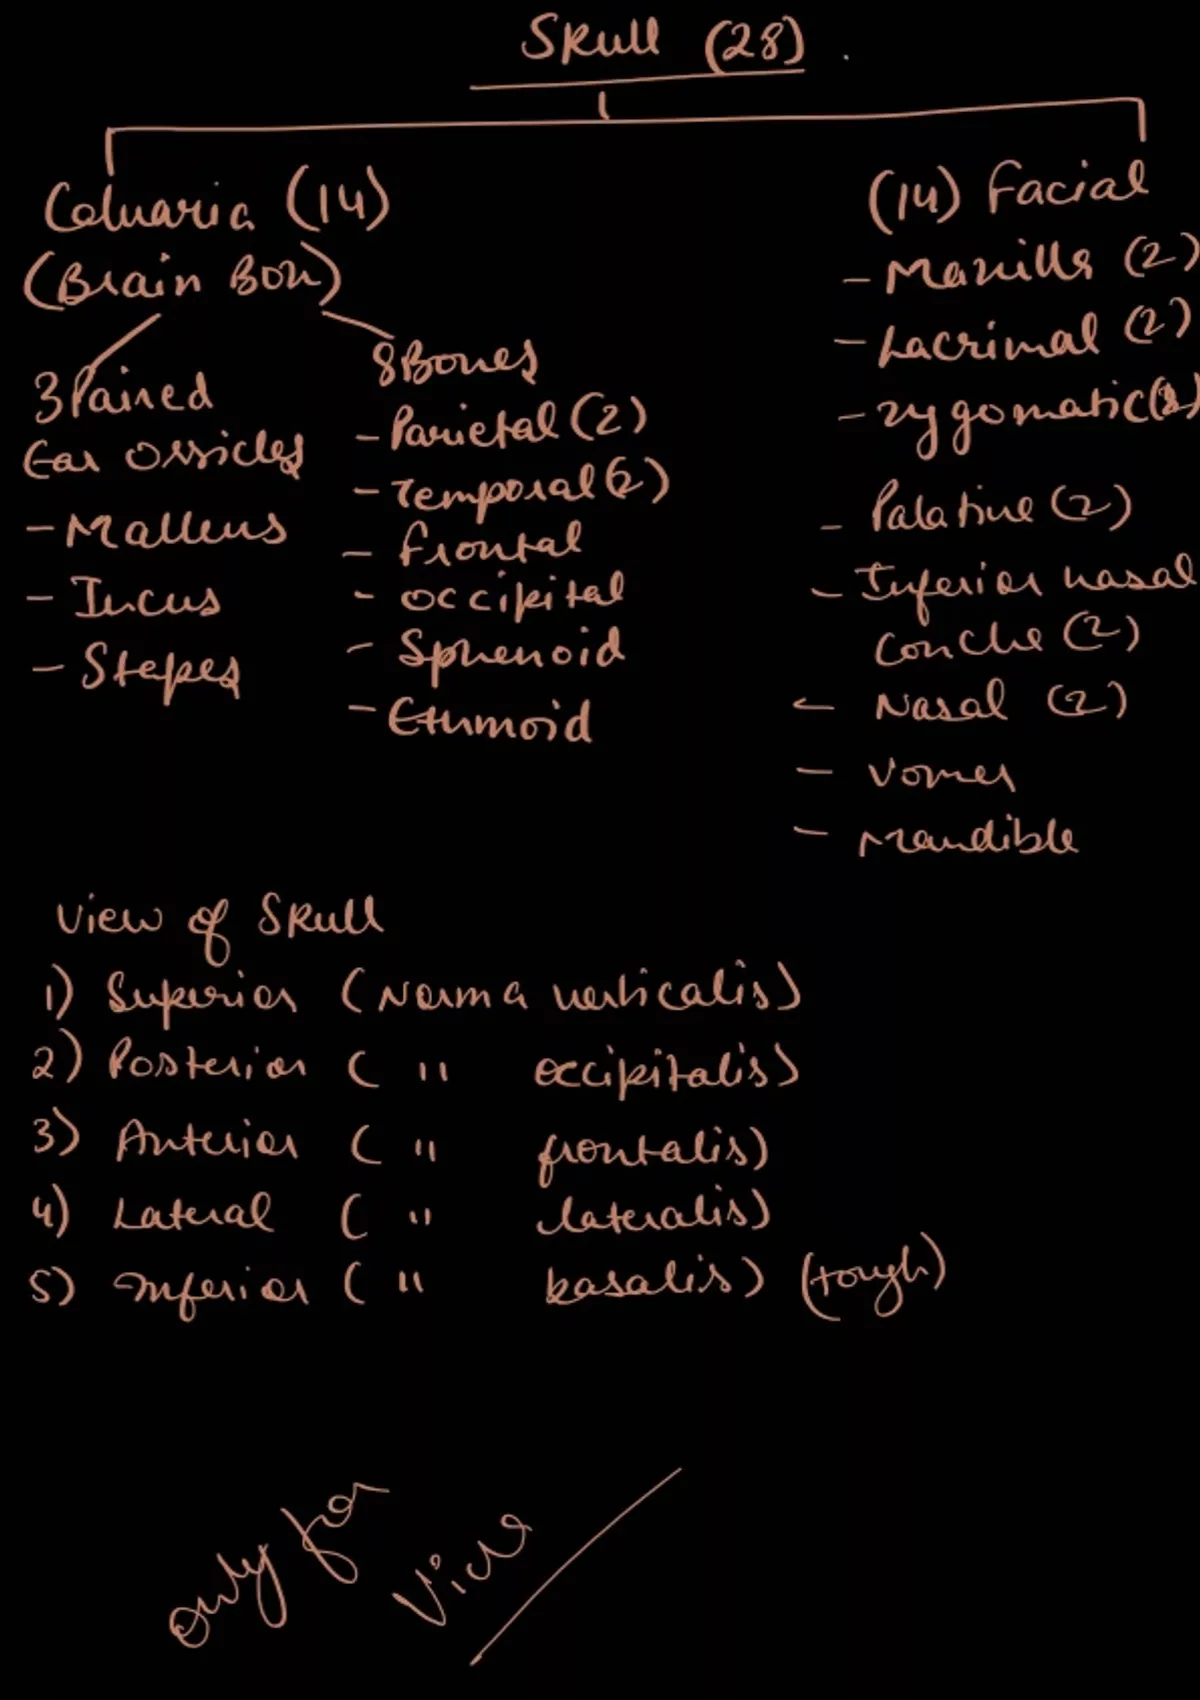 Skull (28)
Calvaria (14)
(Brain Box)
3 Paired
Ear ossicles
- Malleus
- Incus
- Stapes
8 Bones
- Parietal (2)
- Temporal (2)
- frontal
- occipital
- Sphenoid
- Ethmoid
(14) Facial
- Maxilla (2)
- Lacrimal (2)
- zygomatic (2)
- Palatine (2)
- Inferior nasal
conche (2)
- Nasal (2)
- Vomer
- Mandible
View of Skull
1) Superior (Norma verticalis)
2) Posterior ( " occipitalis)
3) Anterior ( " frontalis)
4) Lateral ( " lateralis)
5) Inferior ( " basalis) (tough)
only for